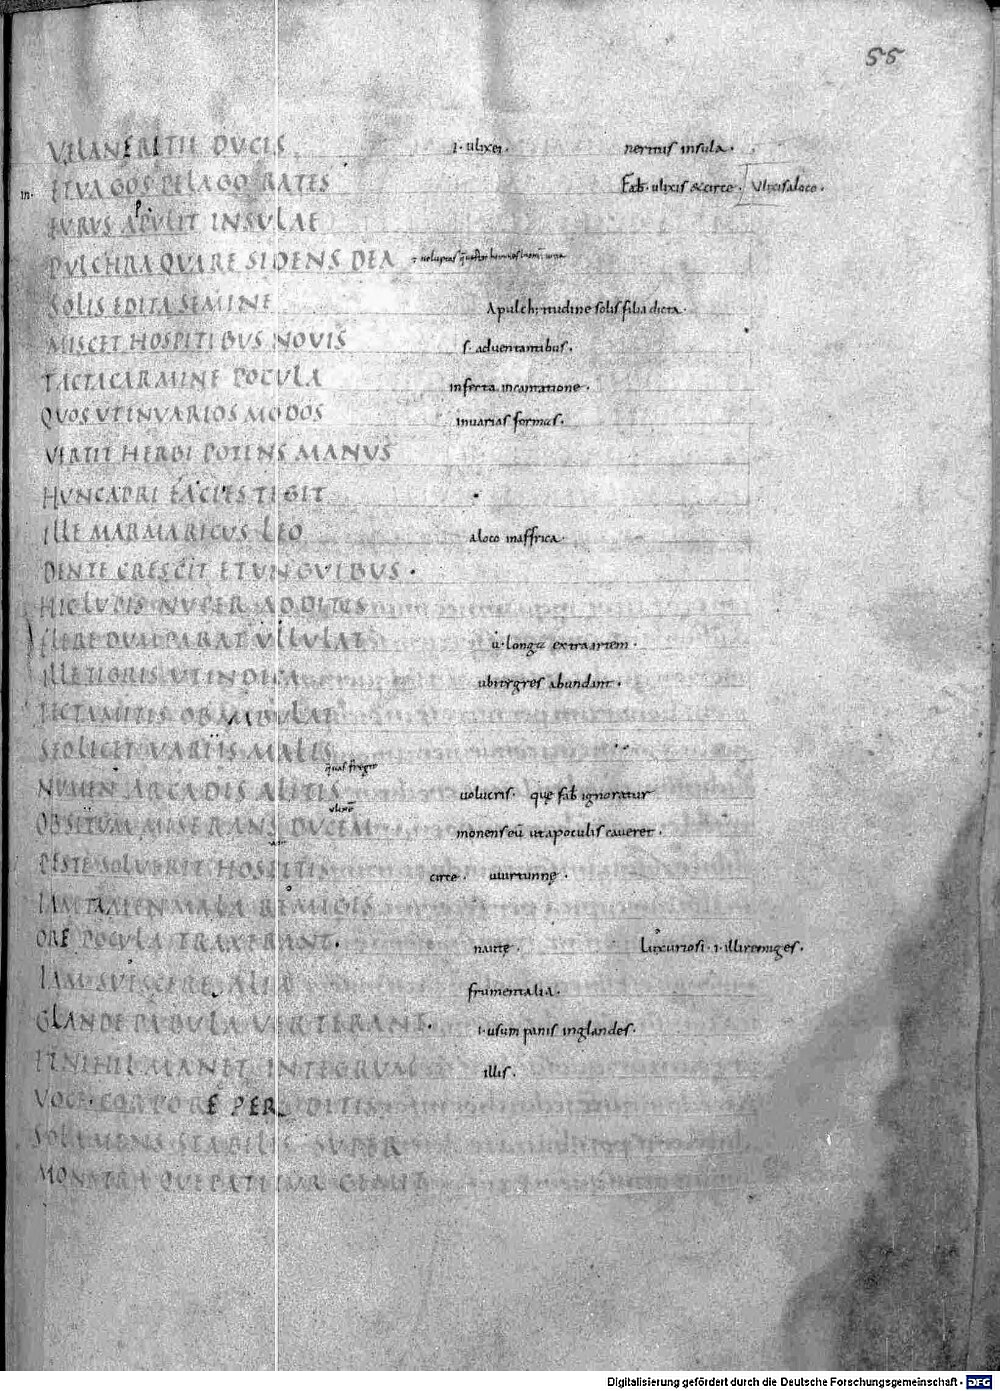 55
VELANERITII DUCIS i. ulixei. neritus insula.
m. ETVAGOS PELAGO RATES Fab. ulixis &circe. Ulixisaloco.
EURUS APPULIT INSULAE
PULCHRA QUARE SIDENS DEA
SOLIS EDITA SEMINE Apulchritudine solis filia dicta.
MISCET HOSPITIBUS NOVIS s. aduentantibus.
TACTACARMINE POCULA infecta incantatione.
QUOSUTINVARIOS MODOS inuarias formas.
VERTIT HERBI POTENS MANUS
HUNCAPRI FACIES TEGIT
ILLE MARMARICUS LEO aloco inaffrica.
DENTE CRESCIT ETUNGUIBUS.
HICLUPIS NUPER ADDITUS
FLERE DUMPARAT ULLULAT u. longa extra artem.
ILLETIGRIS UTINDICA ubi tygres abundant.
TECTAMITIS OBAMBULAT
SEDLICET VARIIS MALIS
NUMEN ARCADIS ALITIS uolucris. quę fab ignoratur
OBSITUM MISERANS DUCEM monens eū utapoculis caueret.
PESTE SOLVERIT HOSPITIS circe. uirtunnę.
IAMTAMEN MALA REMIGES
ORE POCULA TRAXERANT. nautę. Luxuriosi. i. illi remiges.
IAMSUESCERE ALIA frumentalia.
GLANDE PABULA VERTERANT. i. usum panis inglandes.
ETNIHIL MANET INTEGRUM illis.
VOCE CORPORE PERDITIS
SOLAMENS STABILIS SUPER
MONSTRA QUEPATITUR GEMIT
Digitalisierung gefördert durch die Deutsche Forschungsgemeinschaft - DFG